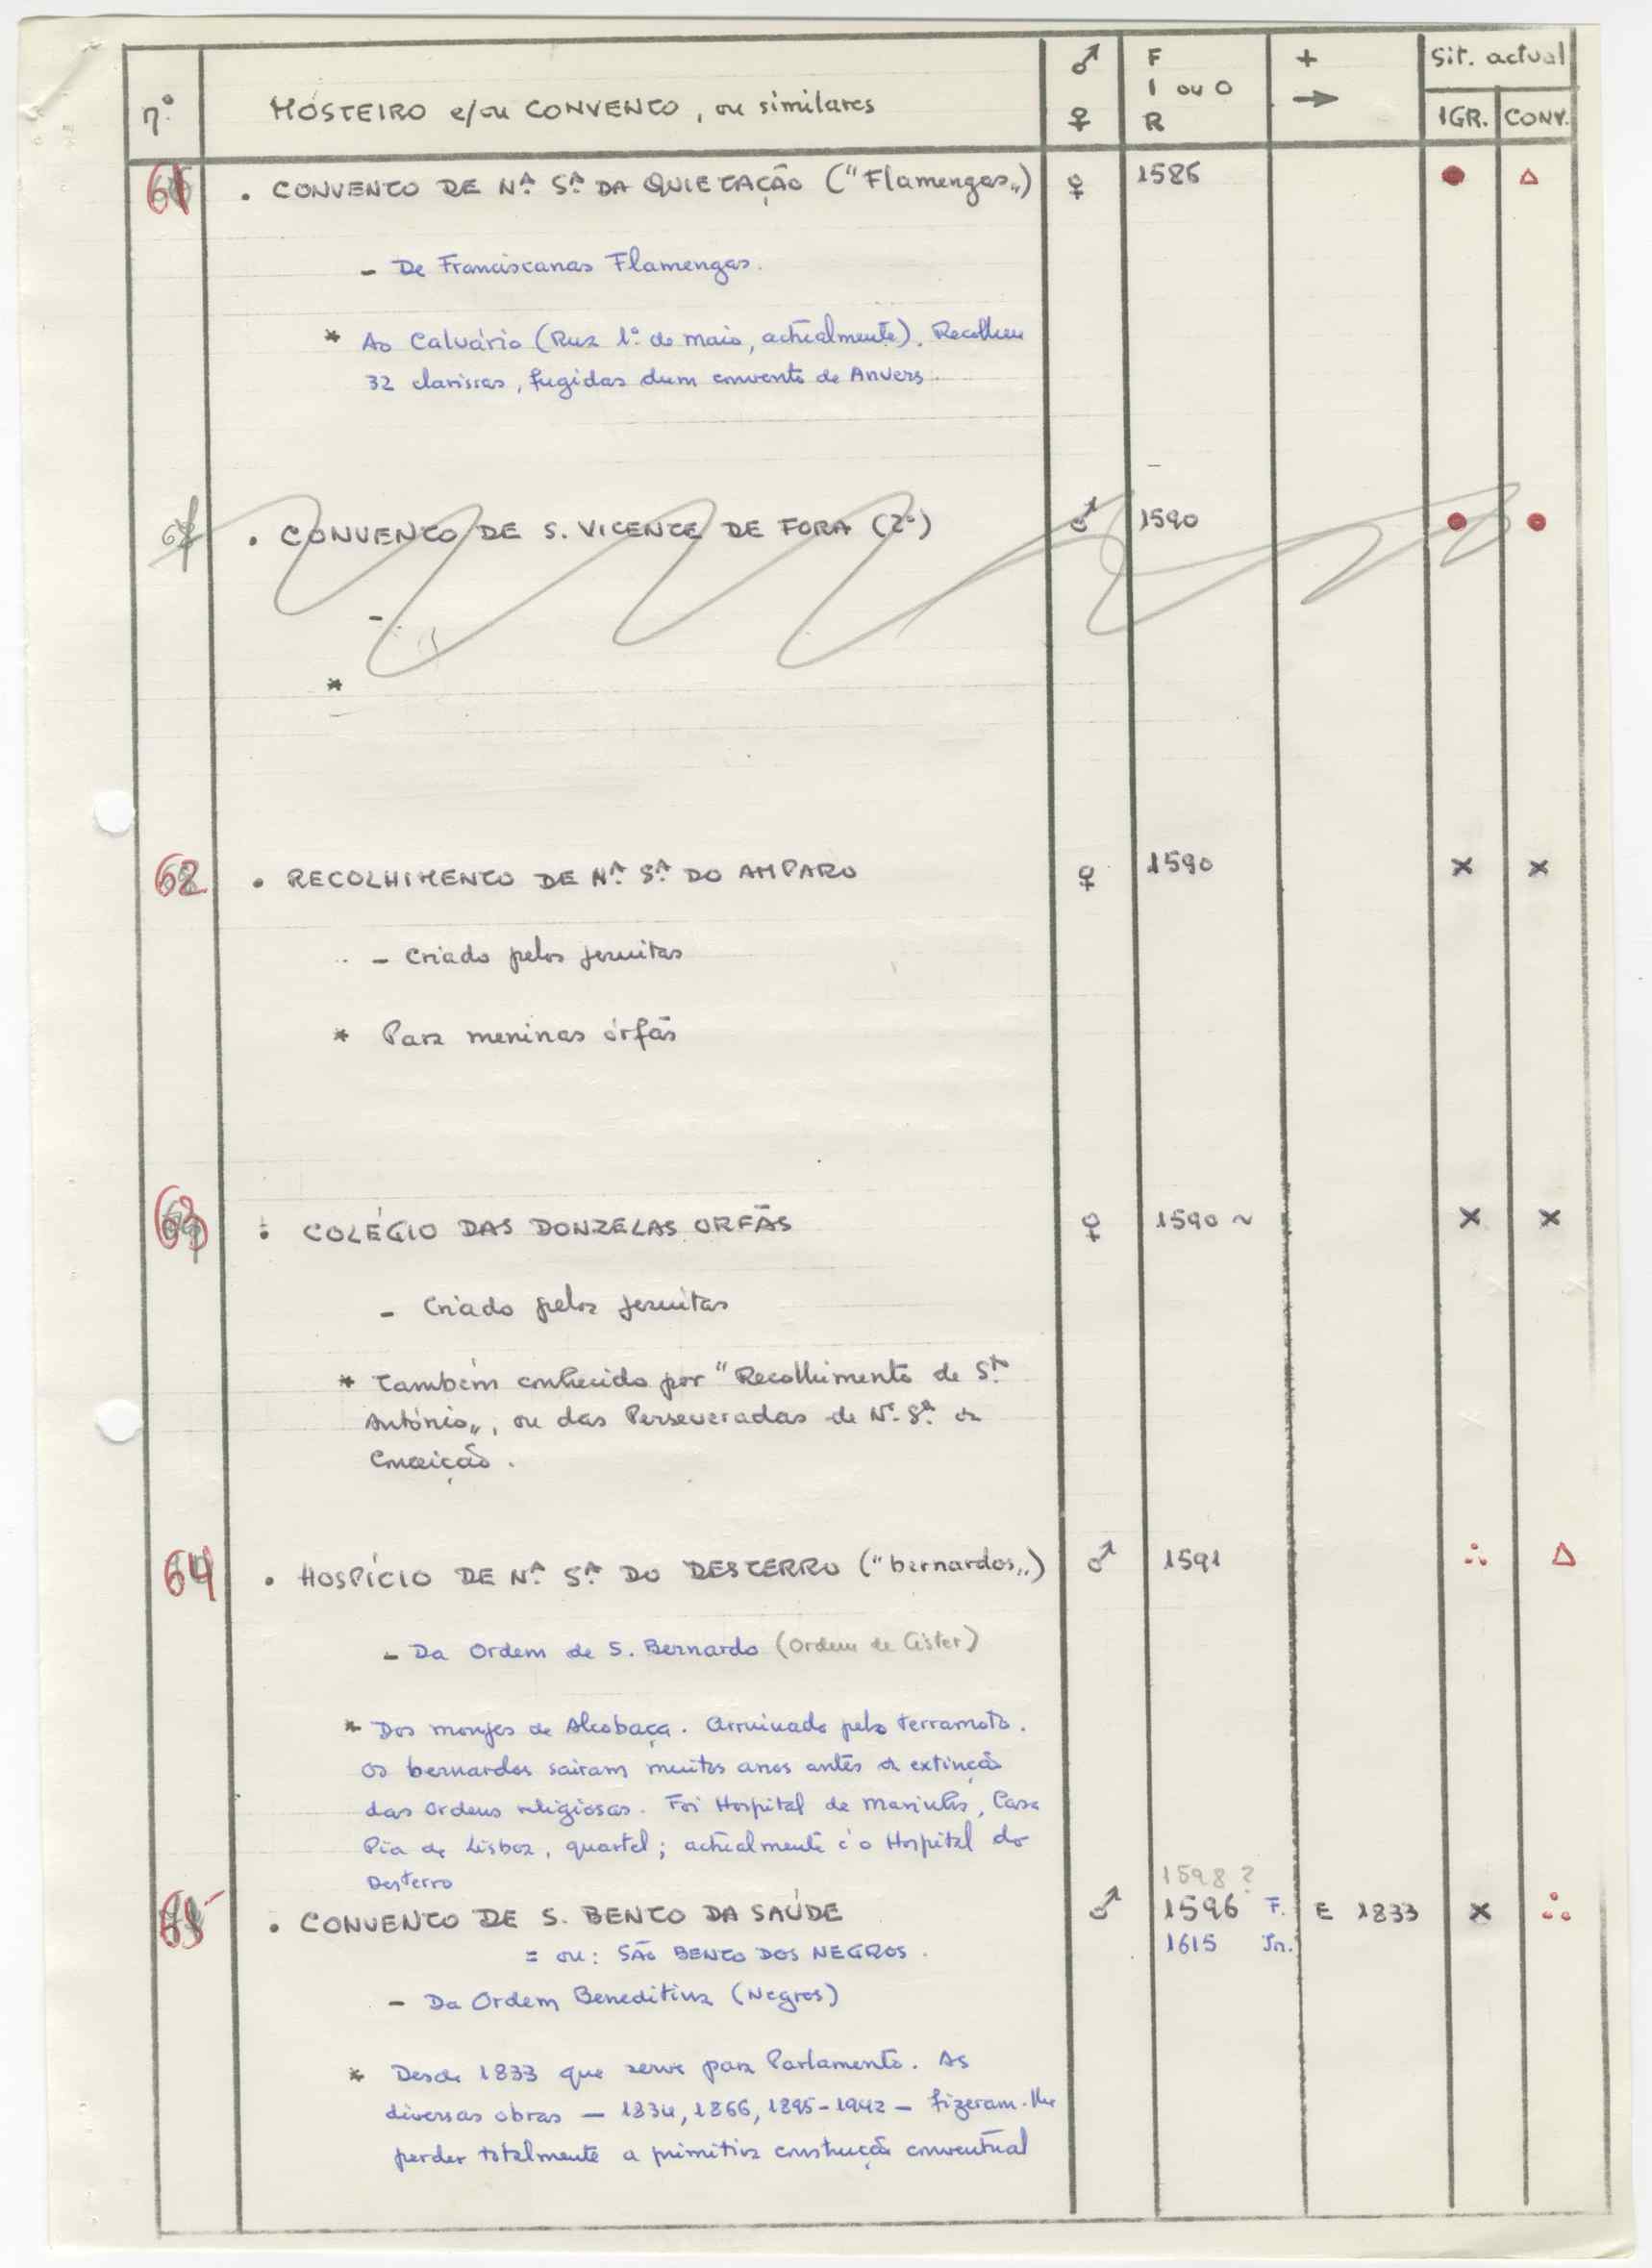 n.º MOSTEIRO e/ou CONVENTO, ou similares ♂ ♀ F I ou O R + → Sit. actual IGR. CONV.
61 • CONVENTO DE Nª Sª DA QUIETAÇÃO ("Flamengas") ♀ 1586 ● △
- De Franciscanas Flamengas.
* Ao Calvário (Rua 1º de Maio, actualmente). Recolheu
32 clarissas, fugidas dum convento de Anvers.
• CONVENTO DE S. VICENTE DE FORA (2º) ♂ 1590 ● ●
-
*
62 • RECOLHIMENTO DE Nª Sª DO AMPARO ♀ 1590 × ×
- Criado pelos jesuitas
* Para meninas órfãs
63 • COLÉGIO DAS DONZELAS ORFÃS ♀ 1590 ~ × ×
- Criado pelos jesuitas
* Também conhecido por "Recolhimento de Stº
António", ou das Perseveradas de Nª Sª da
Conceição.
64 • HOSPÍCIO DE Nª Sª DO DESTERRO ("bernardos") ♂ 1591 ∴ △
- Da Ordem de S. Bernardo (Ordem de Cister)
* Dos monjes de Alcobaça. Arruinado pelo terramoto.
Os bernardos sairam muitos anos antes da extinção
das Ordens religiosas. Foi Hospital de Marinha, Casa
Pia de Lisboa, quartel; actualmente é o Hospital do
Desterro
1598?
65 • CONVENTO DE S. BENTO DA SAÚDE ♂ 1596 F. E 1833 × ∴
= ou: SÃO BENTO DOS NEGROS. 1615 In.
- Da Ordem Beneditina (Negros)
* Desde 1833 que serve para Parlamento. As
diversas obras — 1834, 1866, 1895-1942 — fizeram-lhe
perder totalmente a primitiva construção conventual